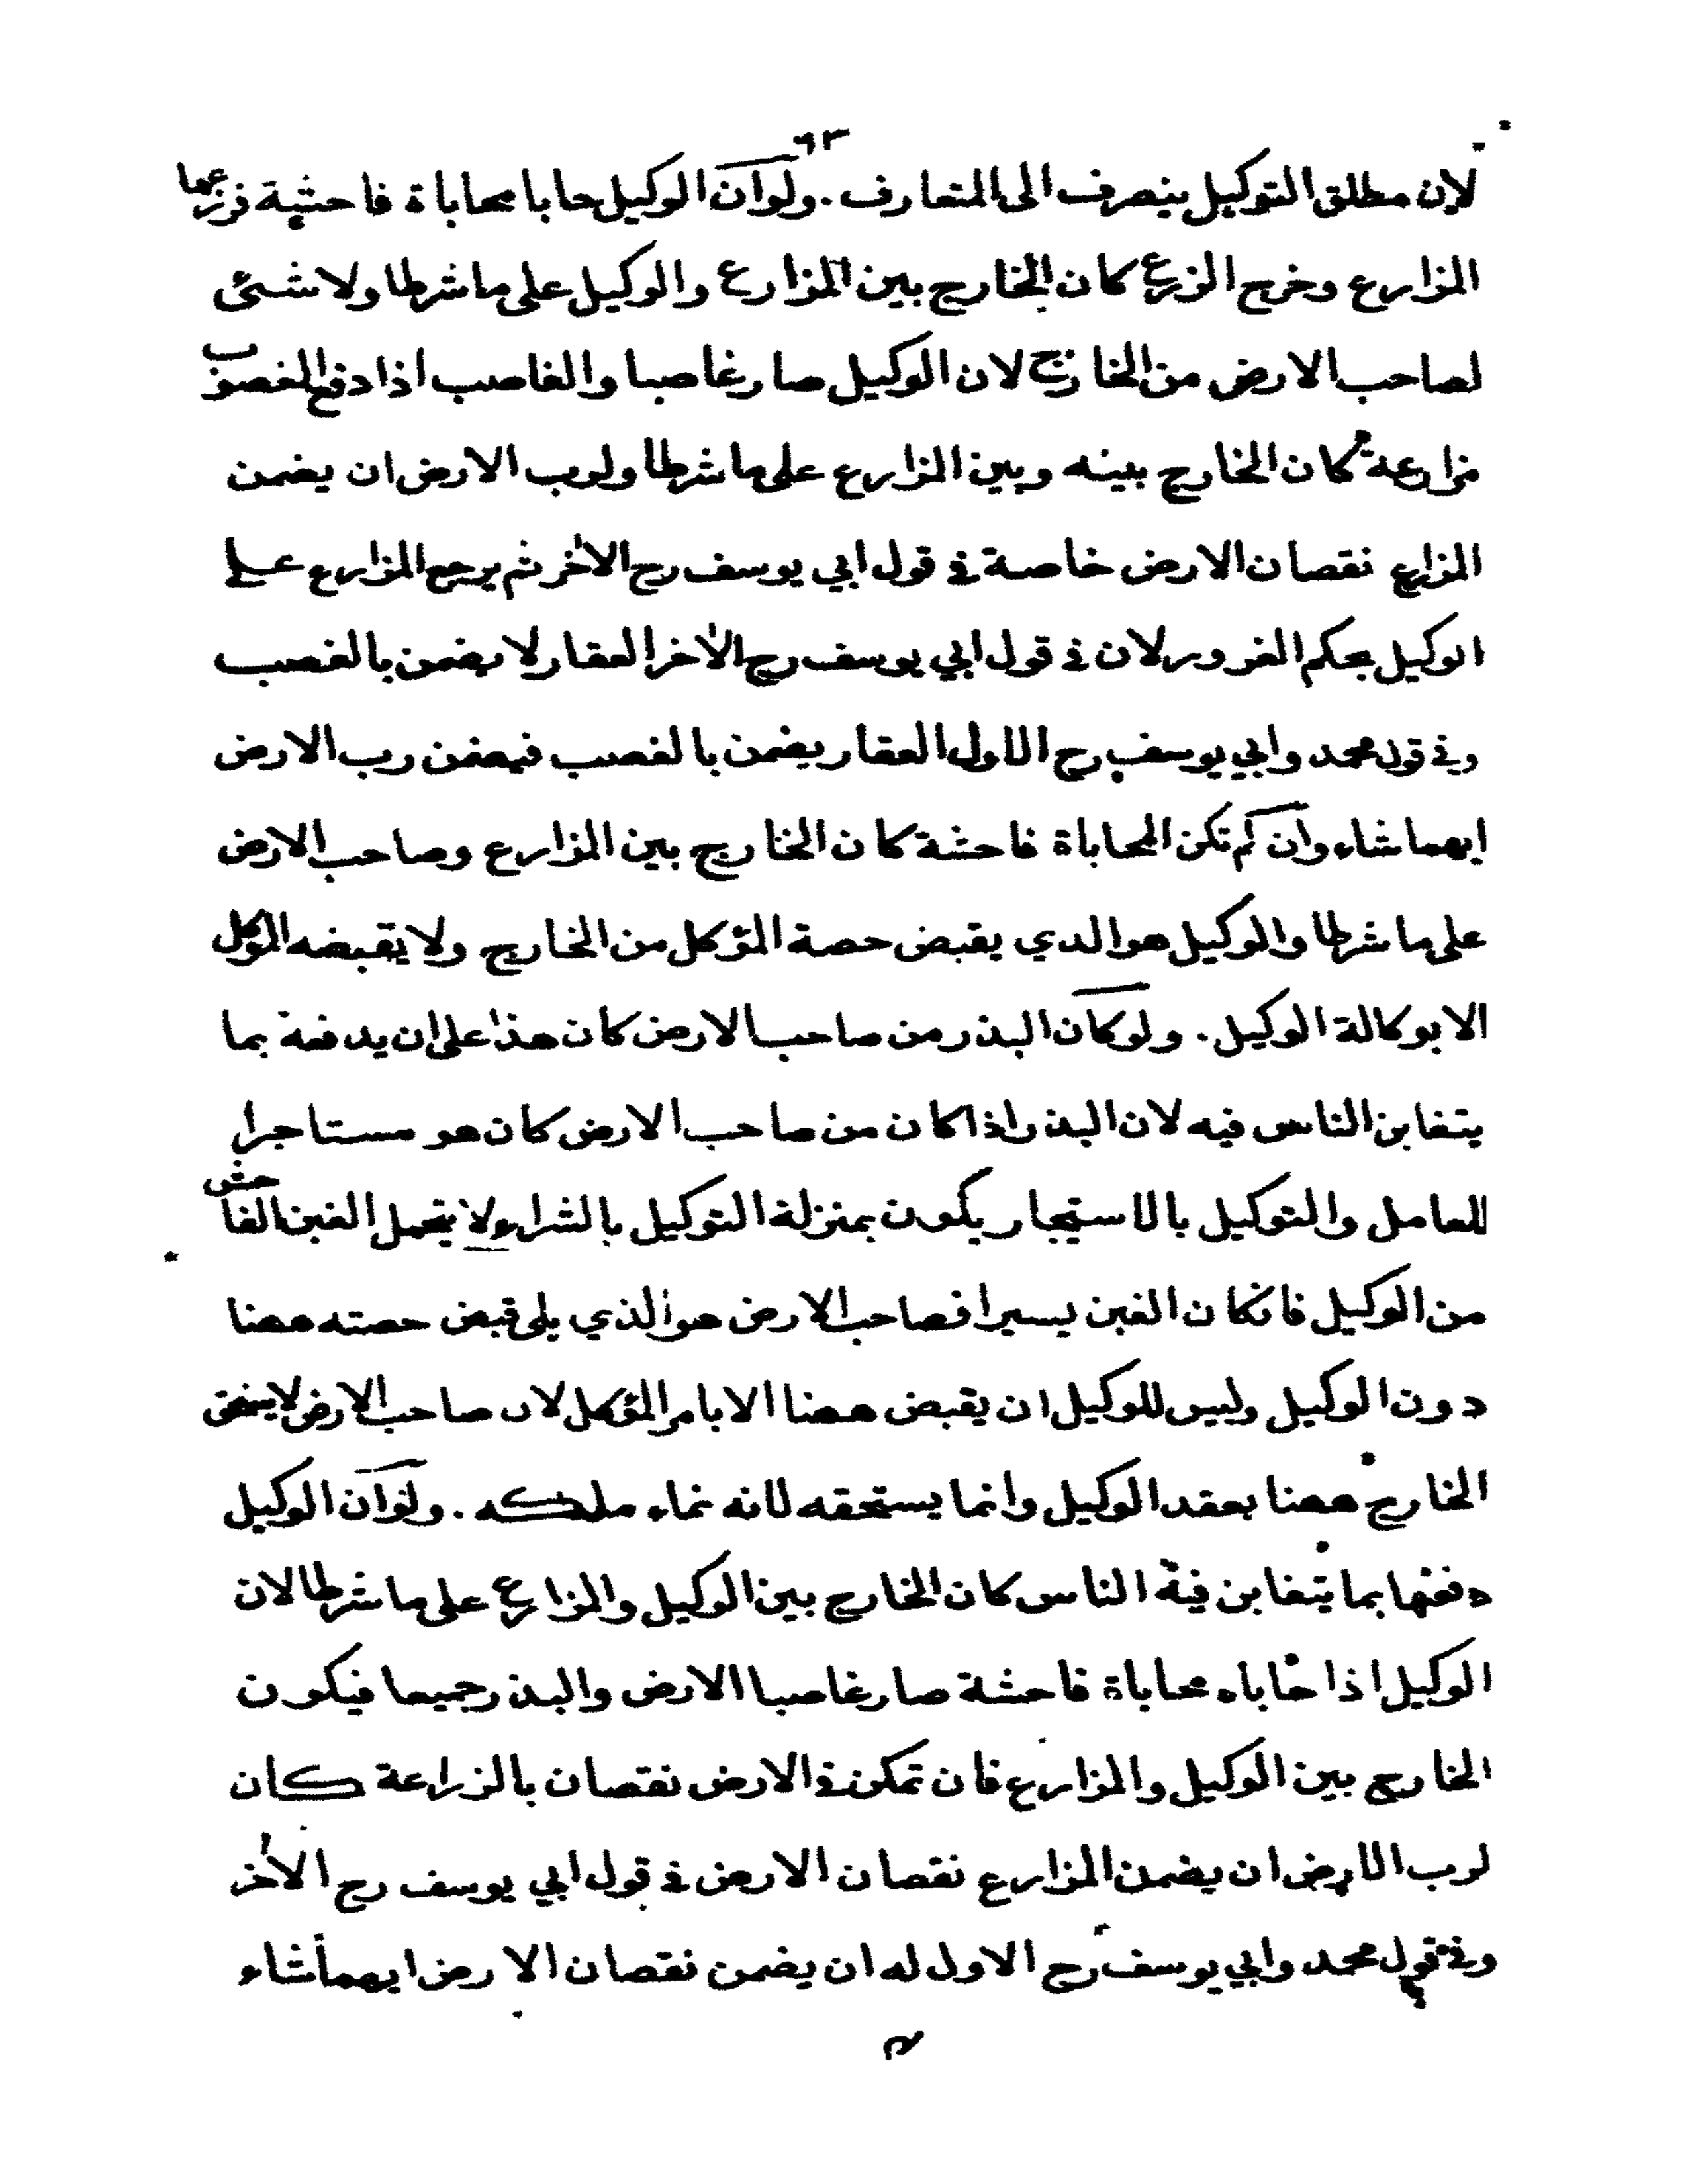 ٦٣
لان مطلق التوكيل ينصرف الى المتعارف . ولو ان الوكيل حابا محاباة فاحشة فزرعها
المزارع وخرج الزرع كان الخارج بين المزارع والوكيل على ما شرطا ولا شئ
لصاحب الارض من الخارج لان الوكيل صار غاصبا والغاصب اذا دفع المغصوب
مزارعة كان الخارج بينه وبين المزارع على ما شرطا ولرب الارض ان يضمن
المزارع نقصان الارض خاصة في قول ابي يوسف رح الاخر ثم يرجع المزارع على
الوكيل بحكم الغرور لان في قول ابي يوسف رح الاخر العقار لا يضمن بالغصب
وفي قول محمد وابي يوسف رح الاول العقار يضمن بالغصب فيضمن رب الارض
ايهما شاء وان لم تكن المحاباة فاحشة كان الخارج بين المزارع وصاحب الارض
على ما شرطا والوكيل هو الذي يقبض حصة المؤكل من الخارج ولا يقبضه المؤكل
الا بوكالة الوكيل . ولو كان البذر من صاحب الارض كان هذا على ان يدفعه بما
يتغابن الناس فيه لان البذر اذا كان من صاحب الارض كان هو مستاجرا
للعامل والتوكيل بالاستيجار يكون بمنزلة التوكيل بالشراء ولا يتحمل الغبن الفاحش
من الوكيل فان كان الغبن يسيرا فصاحب الارض هو الذي يلي قبض حصته ههنا
دون الوكيل وليس للوكيل ان يقبض ههنا الا بامر المؤكل لان صاحب الارض لا يستحق
الخارج ههنا بعقد الوكيل وانما يستحقه لانه نماء ملكه . ولو ان الوكيل
دفعها بما يتغابن فيه الناس كان الخارج بين الوكيل والمزارع على ما شرطا لان
الوكيل اذا حاباه محاباة فاحشة صار غاصبا الارض والبذر جميعا فيكون
الخارج بين الوكيل والمزارع فان تمكن في الارض نقصان بالزراعة كان
لرب الارض ان يضمن المزارع نقصان الارض في قول ابي يوسف رح الاخر
وفي قول محمد وابي يوسف رح الاول له ان يضمن نقصان الارض ايهما شاء